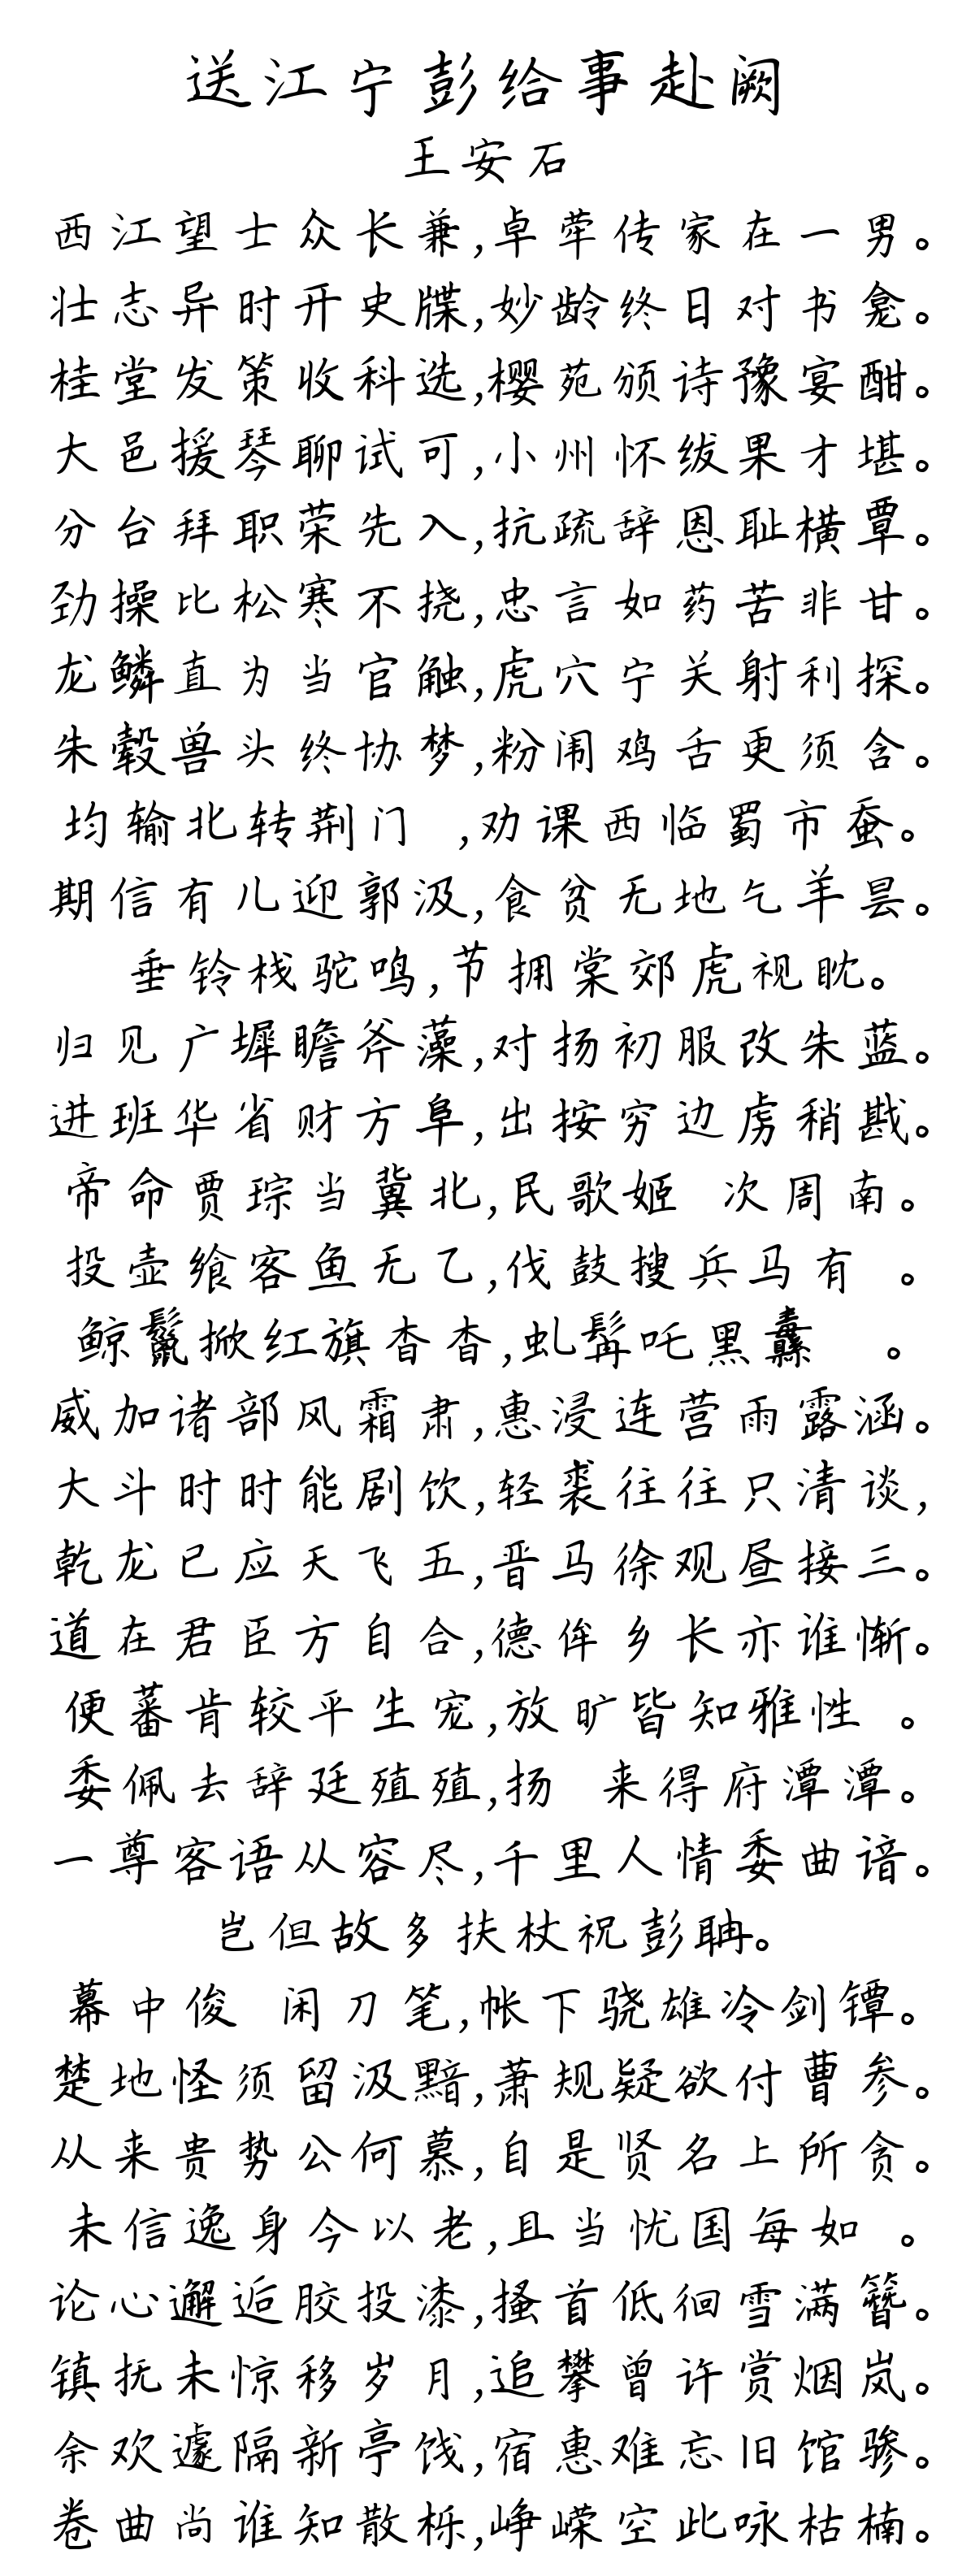 送江宁彭给事赴阙
王安石
西江望士众长兼,卓荦传家在一男。
壮志异时开史牒,妙龄终日对书龛。
桂堂发策收科选,樱苑颁诗豫宴酣。
大邑援琴聊试可,小州怀绂果才堪。
分台拜职荣先入,抗疏辞恩耻横覃。
劲操比松寒不挠,忠言如药苦非甘。
龙鳞直为当官触,虎穴宁关射利探。
朱毂兽头终协梦,粉闱鸡舌更须含。
均输北转荆门 ,劝课西临蜀市蚕。
期信有儿迎郭汲,食贫无地乞羊昙。
垂铃栈驼鸣,节拥棠郊虎视眈。
归见广墀瞻斧藻,对扬初服改朱蓝。
进班华省财方阜,出按穷边虏稍戡。
帝命贾琮当冀北,民歌姬 次周南。
投壶飨客鱼无乙,伐鼓搜兵马有 。
鲸鬣掀红旗杳杳,虬髯吒黑纛 。
威加诸部风霜肃,惠浸连营雨露涵。
大斗时时能剧饮,轻裘往往只清谈,
乾龙已应天飞五,晋马徐观昼接三。
道在君臣方自合,德侔乡长亦谁惭。
便蕃肯较平生宠,放旷皆知雅性 。
委佩去辞廷殖殖,扬 来得府潭潭。
一尊客语从容尽,千里人情委曲谙。
岂但故多扶杖祝彭聃。
幕中俊 闲刀笔,帐下骁雄冷剑镡。
楚地怪须留汲黯,萧规疑欲付曹参。
从来贵势公何慕,自是贤名上所贪。
未信逸身今以老,且当忧国每如 。
论心邂逅胶投漆,搔首低徊雪满簪。
镇抚未惊移岁月,追攀曾许赏烟岚。
余欢遽隔新亭饯,宿惠难忘旧馆骖。
卷曲尚谁知散栎,峥嵘空此咏枯楠。